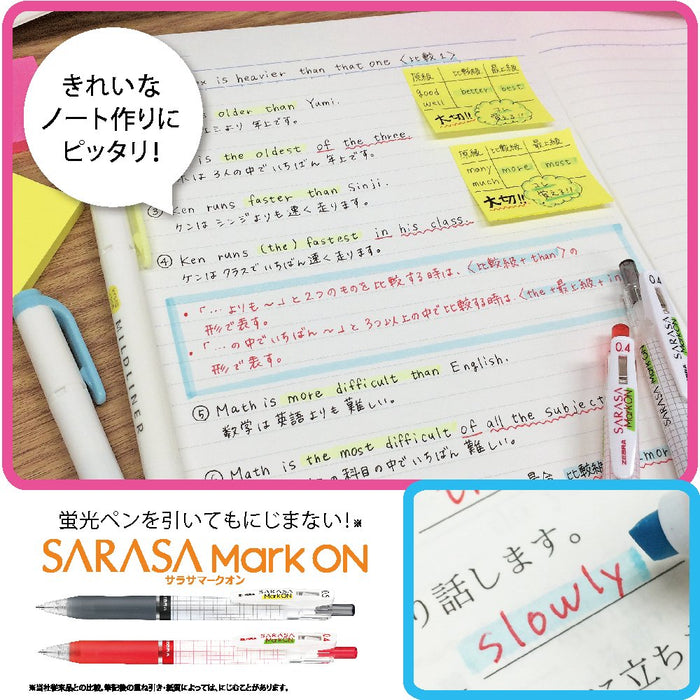 きれいな
ノート作りに
ピッタリ!
is heavier than that one 〈比較1〉
older than Yumi.
より 年上です。
is the oldest of the three.
は 3人の中でいちばん 年上です。
③ Ken runs faster than Sinji.
ケンは シンジよりも 速く 走ります。
④ Ken runs (the) fastest in his class.
ケンは クラスでいちばん 速く 走ります。
・「… よりも ～」と 2つのものを 比較する時は、〈比較級 + than〉の
形で表す。
・「… の中でいちばん ～」と 3つ以上の中で比較する時は、〈the + 最上級 + in
形で表す。
⑤ Math is more difficult than English.
数学は 英語よりも 難しい。
Math is the most difficult of all the subject
の科目の中でいちばん 難しい。
比較級
原級 比較級 最上級
good better best
well
大切!!
原級 比較級 最上級
many more most
much
大切!!
MILDLINER
0.4
SARASA
MarkON
ZEBRA
0.4
SARASA
MarkON
蛍光ペンを引いてもにじまない!※
SARASA Mark ON
サラサマークオン
SARASA
MarkON
0.5
SARASA
MarkON
0.4
※当社従来品との比較。筆記後の重ね引き・紙質によっては、にじむことがあります。
り話します。
slowly
に立ち